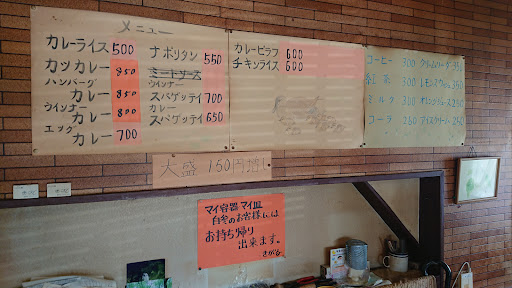 メニュー
カレーライス 500
カツカレー 850
ハンバーグ
カレー 850
ウインナー
カレー 800
エッグ
カレー 700
ナポリタン 550
ミートソース
ウインナー
スパゲッティ 700
カレー
スパゲッティ 650
カレーピラフ 600
チキンライス 600
コーヒー 300
紅茶 300
ミルク 300
コーラ 250
クリームソーダー
レモンスカッシュ 350
オレンジジュース 250
アイスクリーム 250
大盛 150円増し
マイ容器 マイ皿
持参のお客様は
お持ち帰り
出来ます。